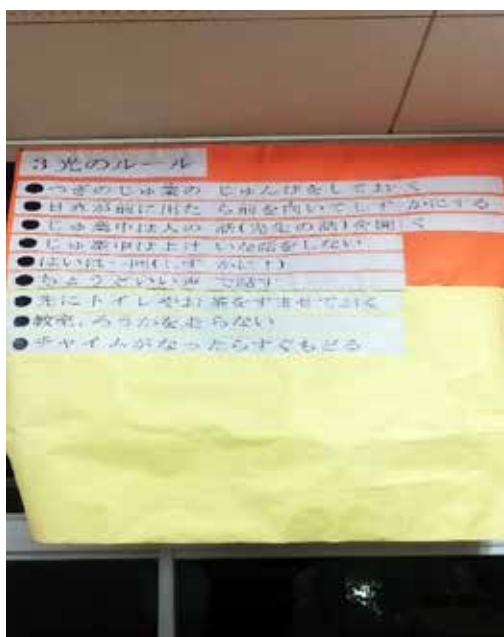 3光のルール
●つぎのじゅ業の じゅんびをしておく
●日直が前に出た ら前を向いてしずかにする
●じゅ業中は人の 話(先生の話)を聞く
●じゅ業中はよけ いな話をしない
●はいは一回(しず かに!)
●ちょうどいい声 で話す
●先にトイレやお 茶をすませておく
●教室、ろうかを走らない
●チャイムがなったらすぐもどる